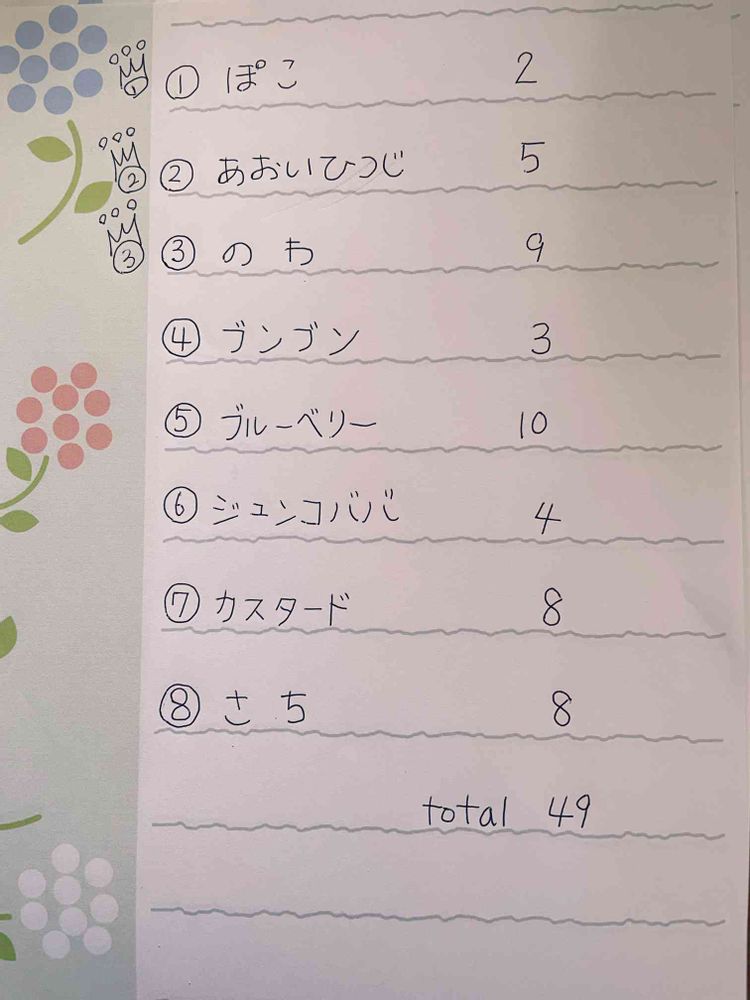 ① ① ぽこ 2
② ② あおいひつじ 5
③ ③ のわ 9
④ ブンブン 3
⑤ ブルーベリー 10
⑥ ジュンコババ 4
⑦ カスタード 8
⑧ さち 8
total 49